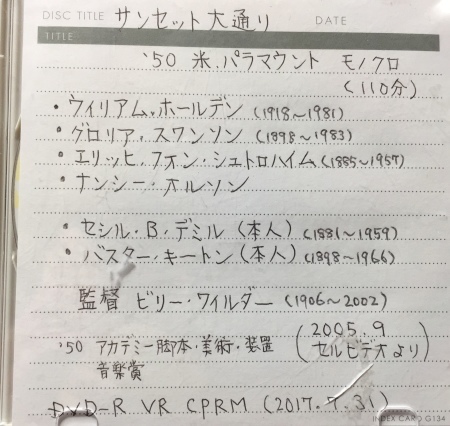 DISC TITLE サンセット大通り DATE
TITLE
'50 米.パラマウント モノクロ
(110分)
・ウィリアム.ホールデン (1918~1981)
・グロリア.スワンソン (1898~1983)
・エリッヒ.フォン・シュトロハイム (1885~1957)
・ナンシー・オルソン
・セシル・B・デミル (本人) (1881~1959)
・バスター・キートン (本人) (1898~1966)
監督 ビリー・ワイルダー (1906~2002)
'50 アカデミー脚本・美術・装置
音楽賞
(2005.9
セルビデオより)
DVD-R VR CPRM (2017.7.31)
INDEX CARD G134